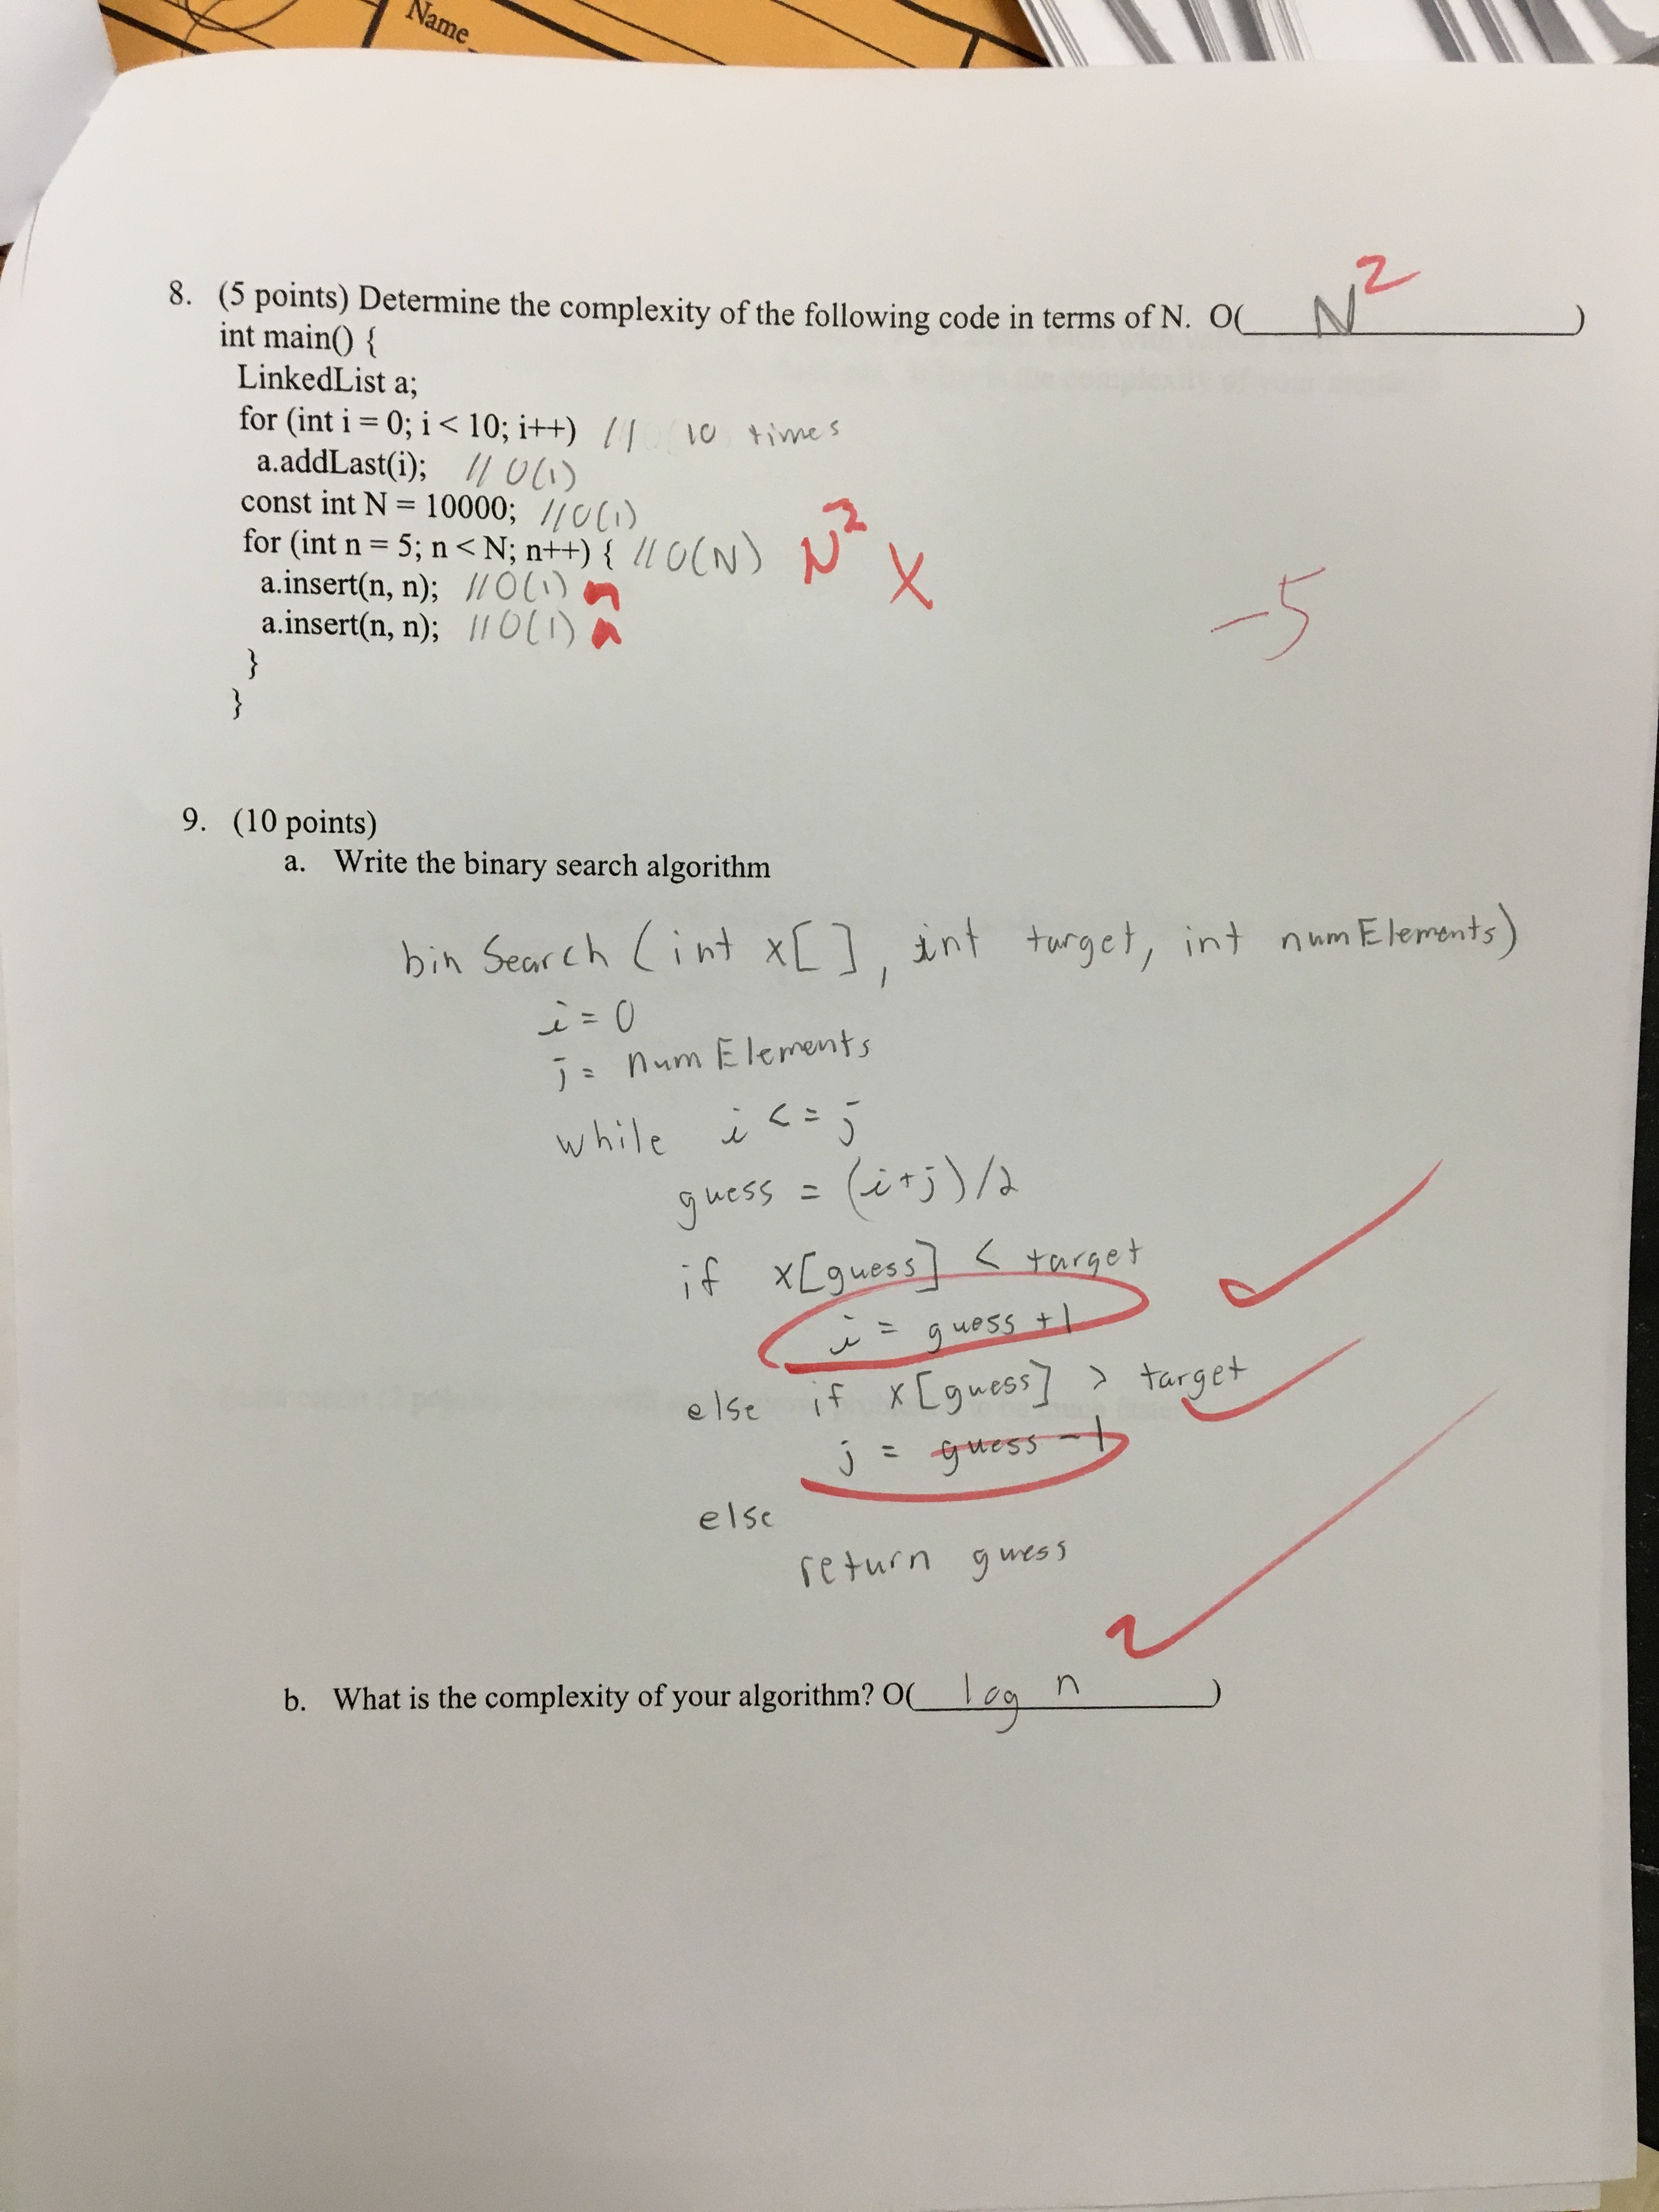 Name
8. (5 points) Determine the complexity of the following code in terms of N. O( N² )
int main() {
LinkedList a;
for (int i = 0; i < 10; i++) // 10 times
a.addLast(i); // O(1)
const int N = 10000; // O(1)
for (int n = 5; n < N; n++) { // O(N) N² X
a.insert(n, n); // O(1) n
a.insert(n, n); // O(1) n
-5
}
}
9. (10 points)
a. Write the binary search algorithm
bin Search (int x[], int target, int numElements)
i = 0
j = numElements
while i <= j
guess = (i+j)/2
if x[guess] < target
i = guess +1
else if x[guess] > target
j = guess -1
else
return guess
b. What is the complexity of your algorithm? O( log n )